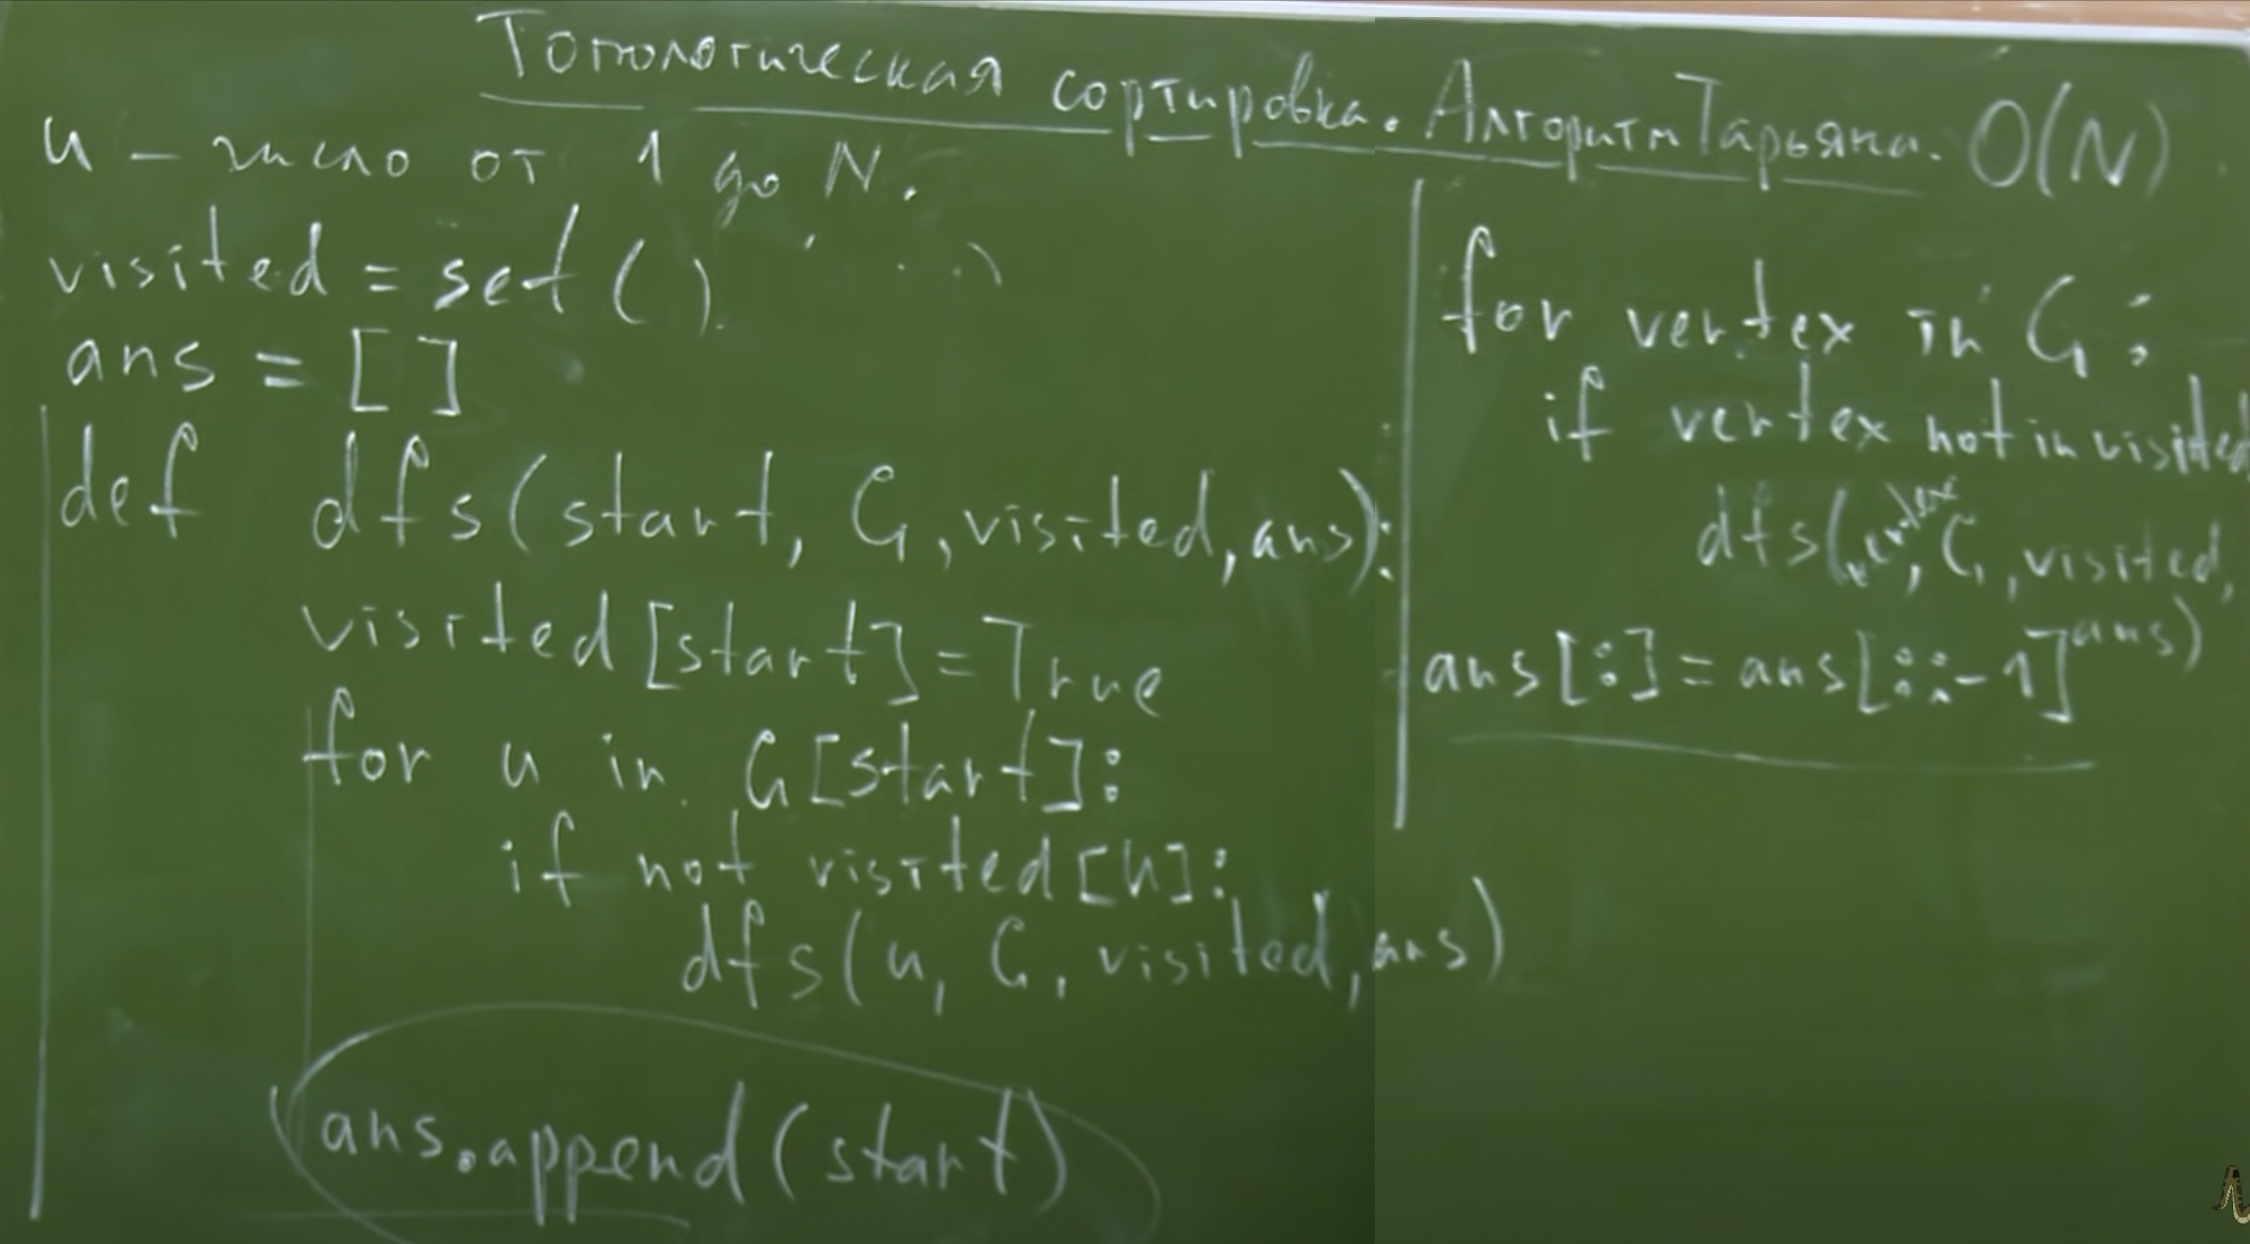 Топологическая сортировка. Алгоритм Тарьяна. O(N)
u – число от 1 до N.
visited = set()
ans = []
def dfs(start, G, visited, ans):
visited[start]=True
for u in G[start]:
if not visited[u]:
dfs(u, G, visited, ans)
ans.append(start)
for vertex in G:
if vertex not in visited
dfs(vertex, G, visited,
ans)
ans[:] = ans[::-1]